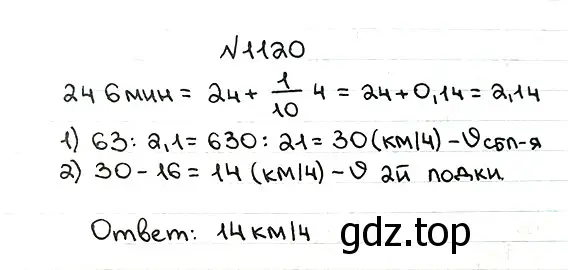 №1120
2ч 6мин = 2ч + 1/10 ч = 2ч + 0,1ч = 2,1ч
1) 63 : 2,1 = 630 : 21 = 30 (км/ч) – υ сбл-я
2) 30 – 16 = 14 (км/ч) – υ 2й лодки.
Ответ: 14 км/ч
gdz.top